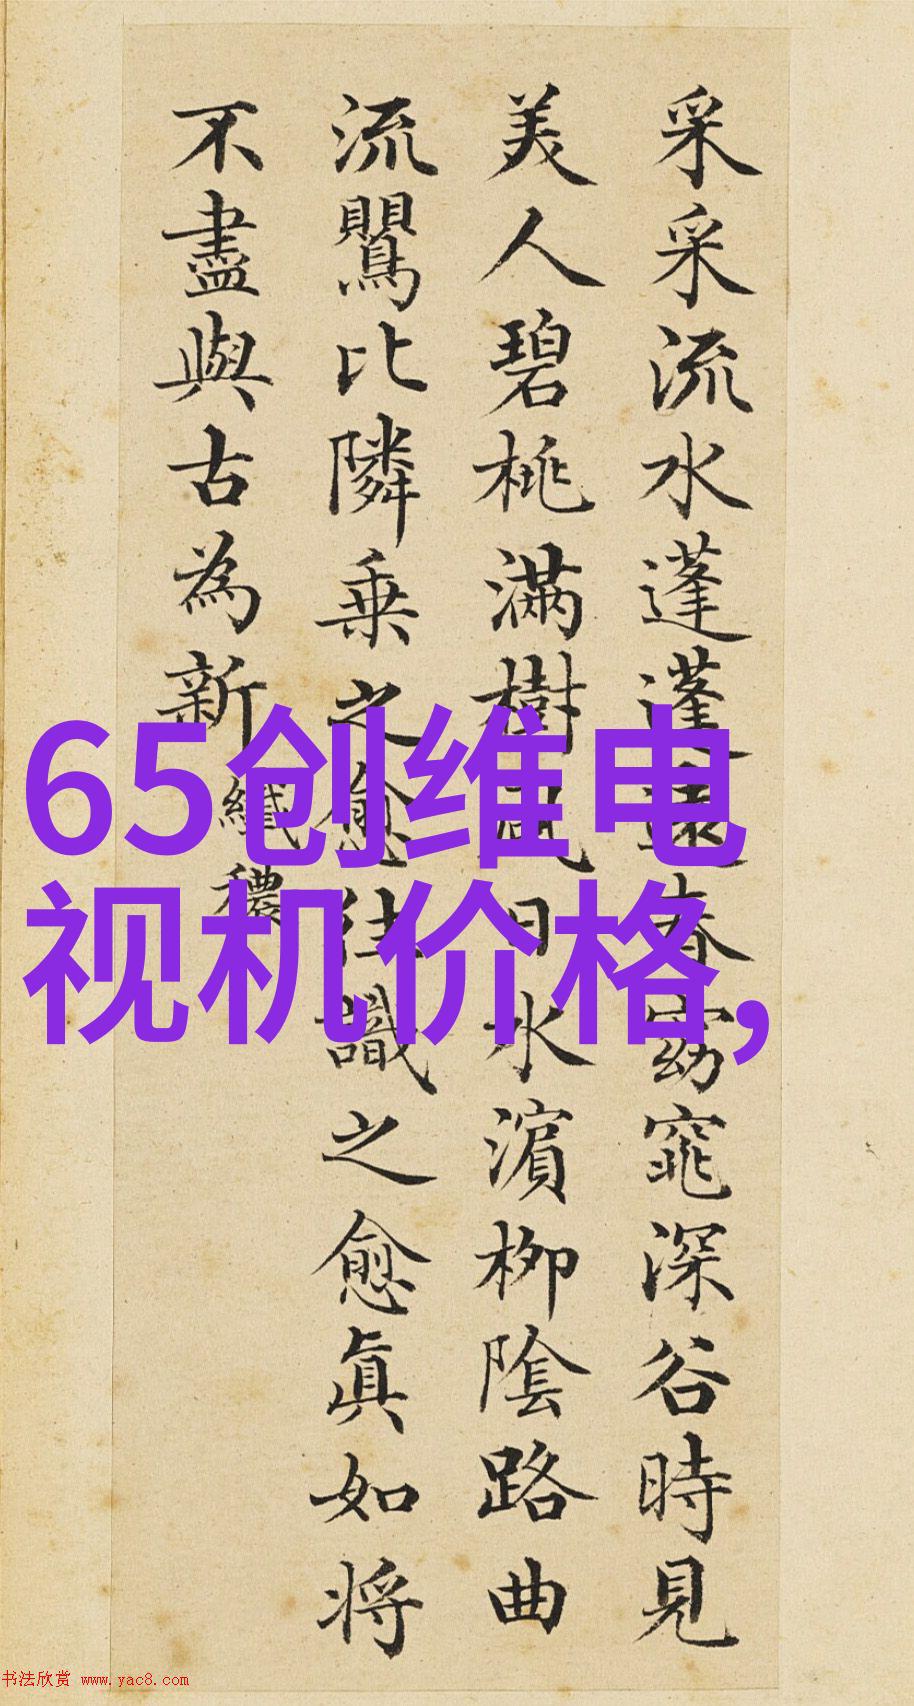 采采流水蓬蓬遠春窈窕深谷時見
美人碧桃滿樹風日水濵柳隂路曲
流鸎比隣乗之愈往識之愈眞如将
不盡與古為新
纖穠
65创维电
视机价格,
书法欣赏 www.yac8.com